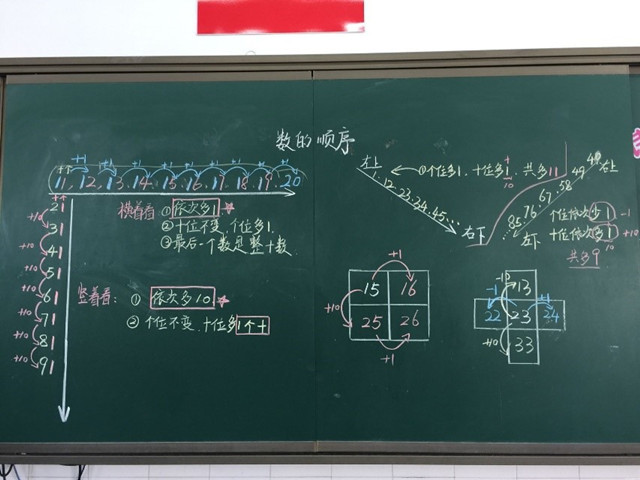 数的顺序
+1 +1 +1 +1 +1 +1 +1 +1
11.12.13.14.15.16.17.18.19.20
21
31
41
51
61
71
81
91
+10 +10 +10 +10 +10 +10 +10
横着看 ①依次多1
②十位不变,个位多1.
③最后一个数是整十数.
竖着看: ① 依次多10
② 个位不变.十位多1个十
左上
①个位多1.十位多1.共多11
10
1.12.23.34.45...
右下
右上
49
58
67
76
85
左下
个位依次少1 -1
十位依次多1 +10
共多9
+1
15 16
+10
25 26
+1
-10
13
-1 +1
22 23 24
+10
33